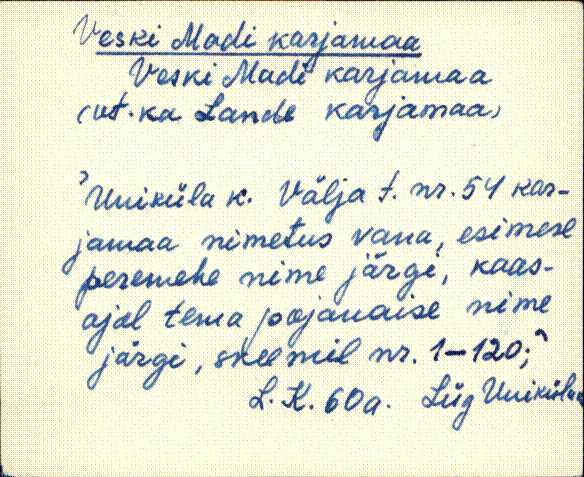 Veski Madi karjamaa
Veski Madi karjamaa
(vt. ka Lande karjamaa)
Uniküla k. Välja t. nr. 54 kar-
jamaa nimetus vana, esimese
peremehe nime järgi, kaas-
ajal tema pojanaise nime
järgi, skeemil nr. 1-120;
L. K. 60a. Lüg Uniküla